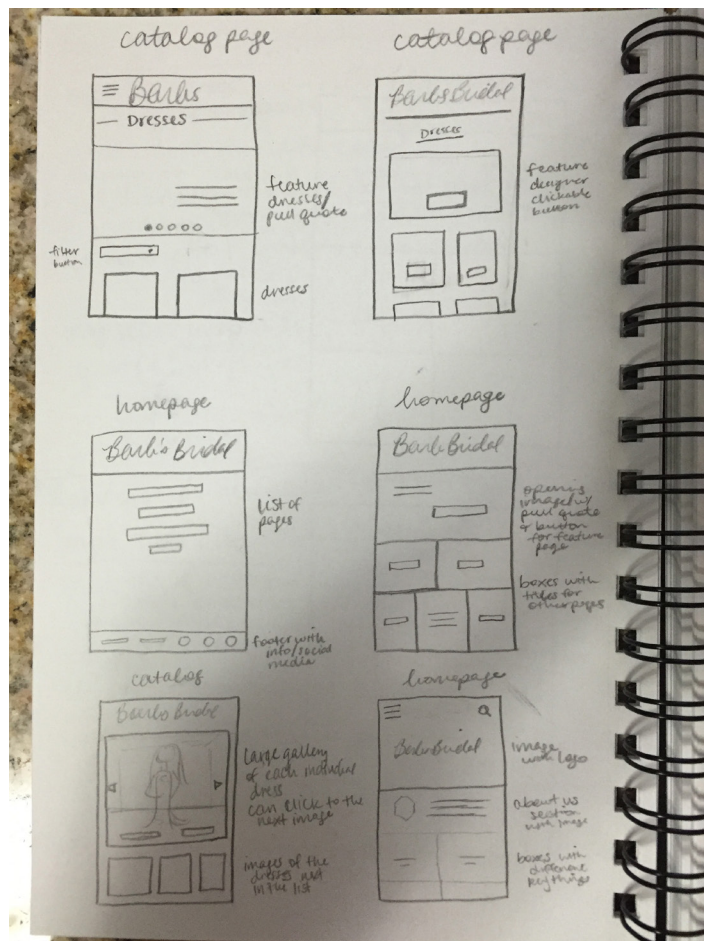 catalog page
Barbs
Dresses
feature
dresses/
pull quote
filter
button
dresses
catalog page
Barbs Bridal
Dresses
feature
designer
clickable
button
homepage
Barb's Bridal
list of
pages
footer with
info/social
media
homepage
Barb Bridal
opening
image w/
pull quote
& button
for feature
page
boxes with
titles for
other pages
catalog
Barbs Bridal
large gallery
of each individual
dress
can click to the
next image
images of the
dresses next
in the list
homepage
Barbs Bridal
image
with logo
about us
section
with image
boxes with
different